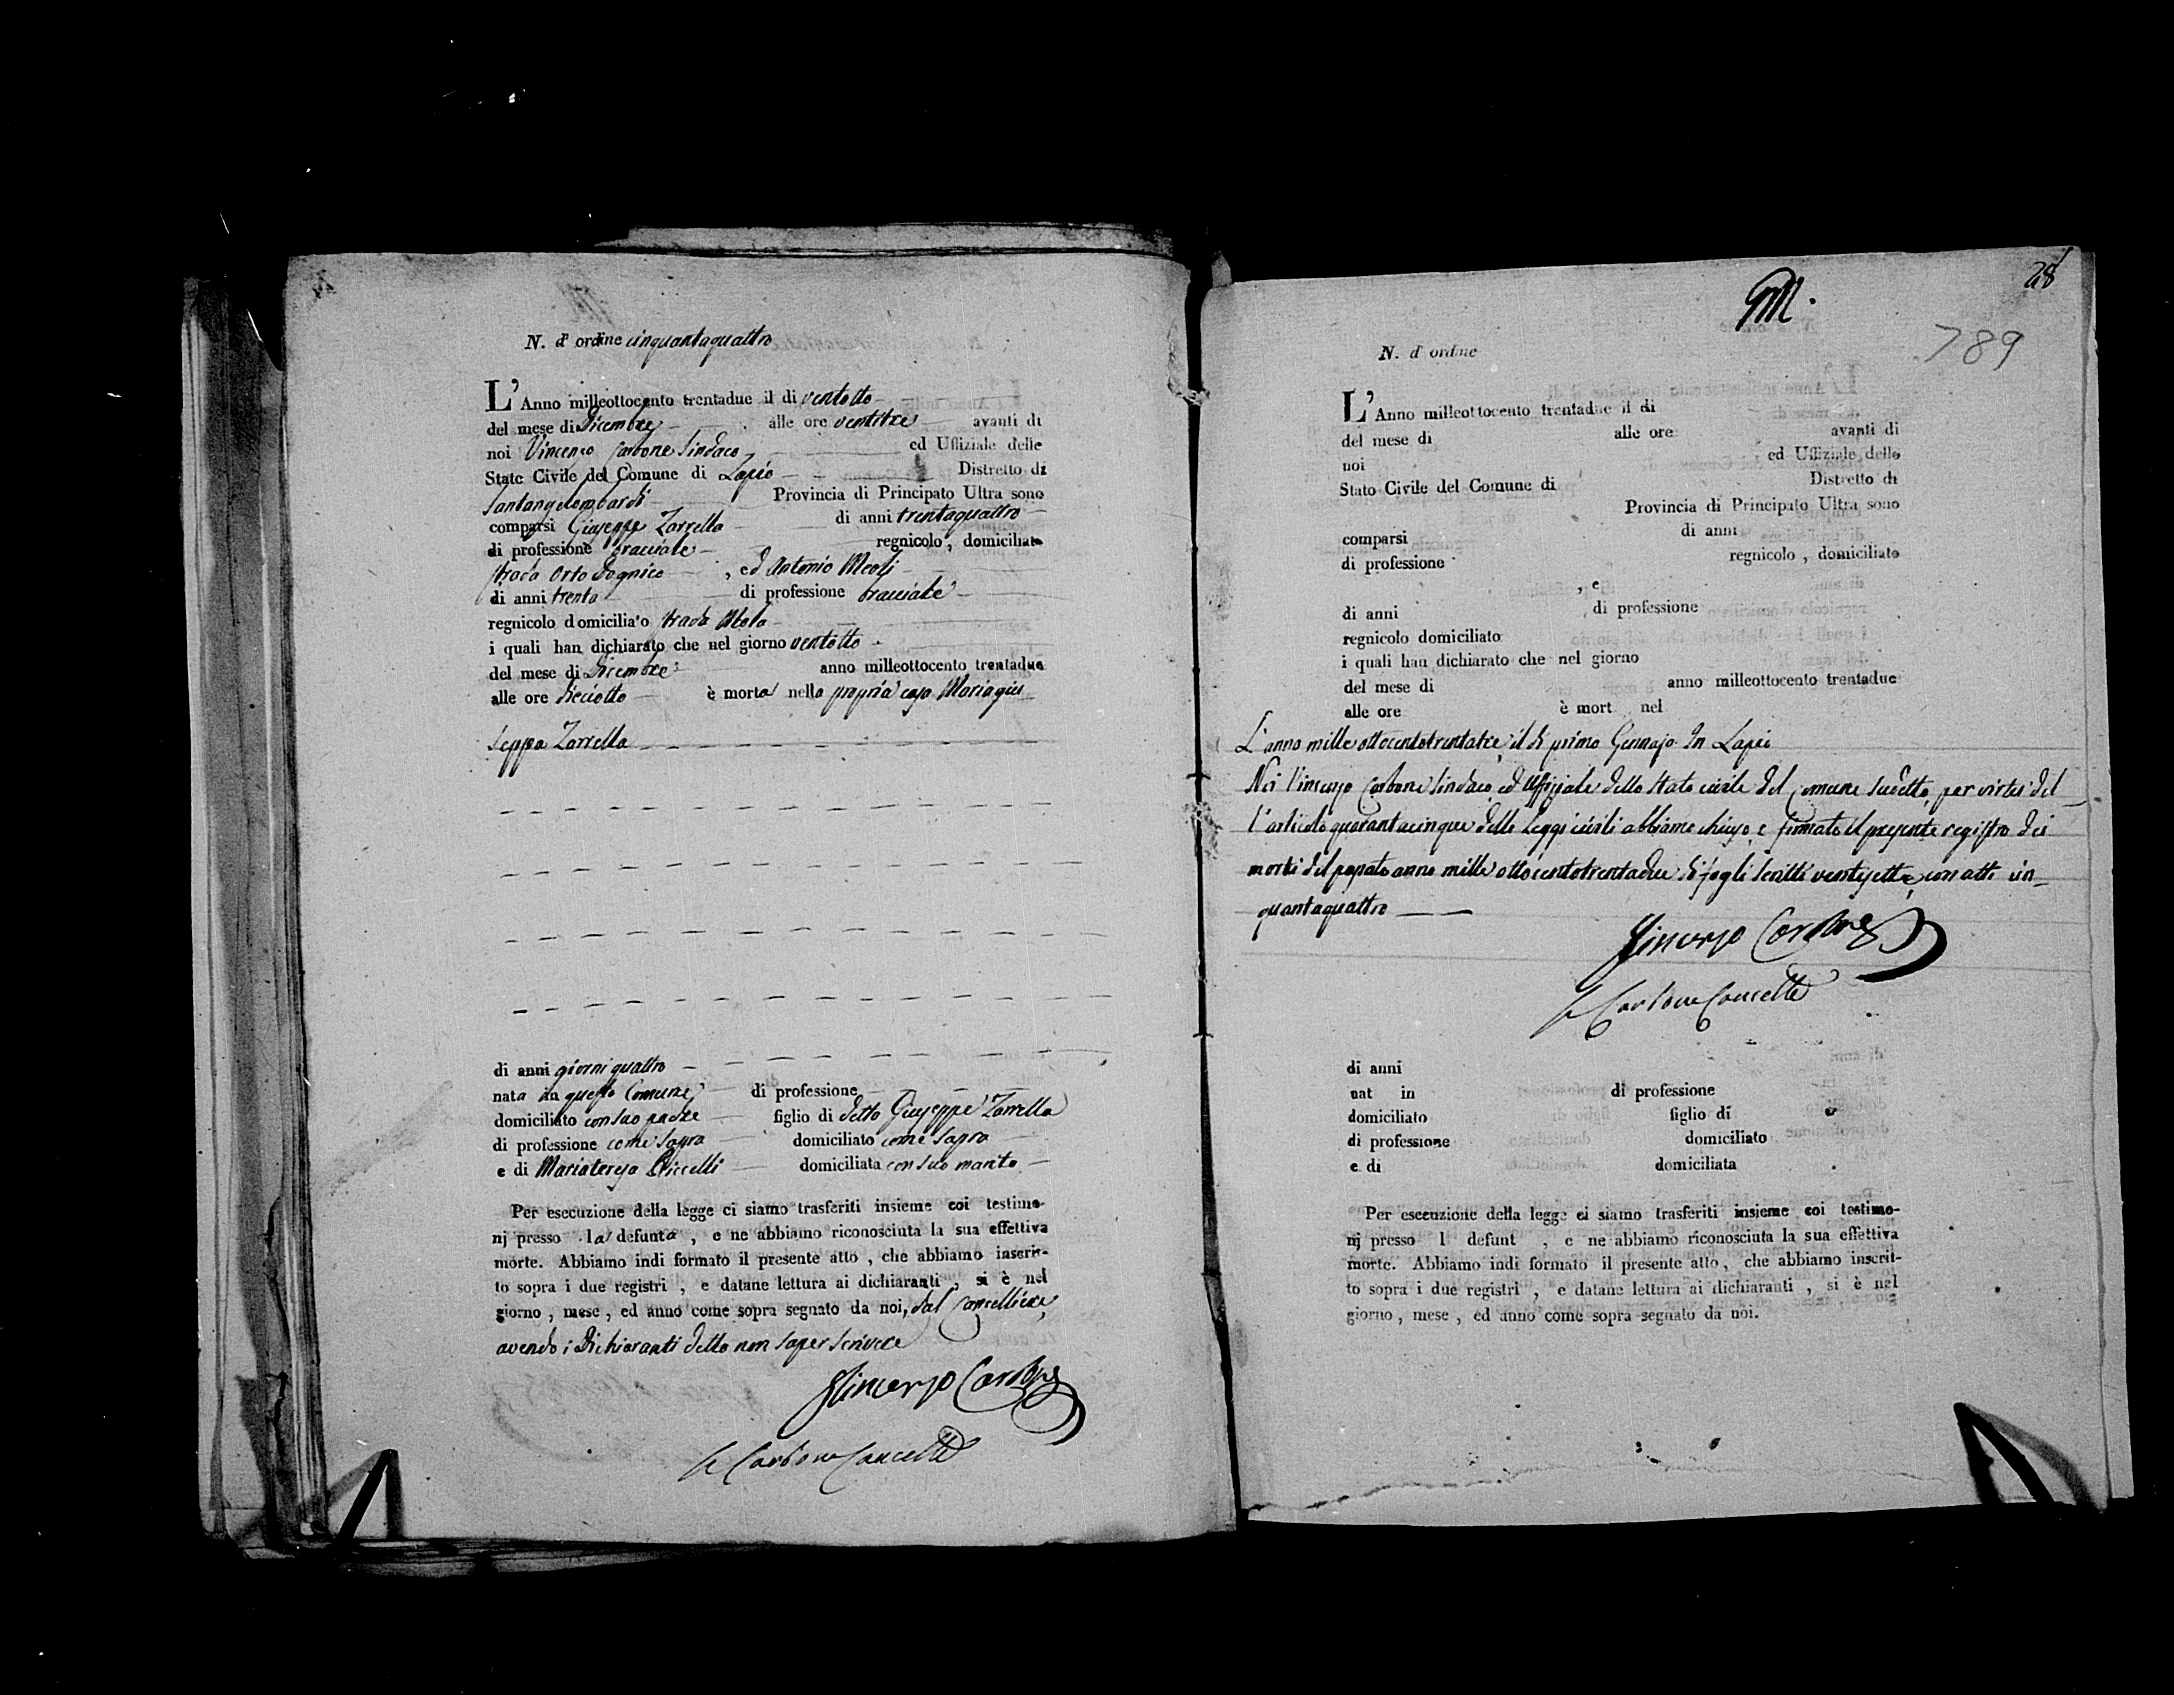 N. d' ordine cinquantaquattro
L'Anno milleottocento trentadue il di ventotto
del mese di Dicembre alle ore ventitre avanti di
noi Vincenzo Carbone Sindaco ed Uffiziale dello
Stato Civile del Comune di Lapio Distretto di
Santangelombardi Provincia di Principato Ultra sono
comparsi Giuseppe Zarrella di anni trentaquattro
di professione bracciale regnicolo, domiciliato
strada Orto , ed Antonio Meoli
di anni trenta di professione bracciale
regnicolo domiciliato strada
i quali han dichiarato che nel giorno ventotto
del mese di Dicembre anno milleottocento trentadue
alle ore dieciotto è morta nella propria casa Mariagiu
seppa Zarrella
di anni giorni quattro
nata in questo Comune di professione
domiciliato con suo padre figlio di detto Giuseppe Zarrella
di professione come sopra domiciliato come sopra
e di Mariateresa domiciliata con suo marito
Per esecuzione della legge ci siamo trasferiti insieme coi testimo-
nj presso la defunta , e ne abbiamo riconosciuta la sua effettiva
morte. Abbiamo indi formato il presente atto , che abbiamo inscrit-
to sopra i due registri , e datane lettura ai dichiaranti , si è nel
giorno , mese , ed anno come sopra segnato da noi, dal Cancelliere,
avendo i Dichiaranti detto non saper scrivere
Vincenzo Carbone
Carbone Cancelle
28
789
N. d' ordine
L'Anno milleottocento trentadue il di
del mese di alle ore avanti di
noi ed Uffiziale dello
Stato Civile del Comune di Distretto di
Provincia di Principato Ultra sono
comparsi di anni
di professione regnicolo , domiciliato
, e
di anni di professione
regnicolo domiciliato
i quali han dichiarato che nel giorno
del mese di anno milleottocento trentadue
alle ore è mort nel
L'anno mille ottocentotrentatre, il di primo Gennajo In Lapio
Noi Vincenzo Carbone Sindaco ed Uffiziale dello Stato civile del Comune sudetto, per virtù del
l'articolo quarantacinque delle Leggi civili abbiamo chiuso e firmato il presente registro dei
morti del passato anno mille ottocentotrentadue di fogli scritti ventisette, con atti cin_
quantaquattro
Vincenzo Carbone
Carbone Cancelle
di anni
nat in di professione
domiciliato figlio di
di professione domiciliato
e di domiciliata
Per esecuzione della legge ci siamo trasferiti insieme coi testimo-
nj presso l defunt , e ne abbiamo riconosciuta la sua effettiva
morte. Abbiamo indi formato il presente atto , che abbiamo inscrit-
to sopra i due registri , e datane lettura ai dichiaranti , si è nel
giorno , mese , ed anno come sopra segnato da noi.